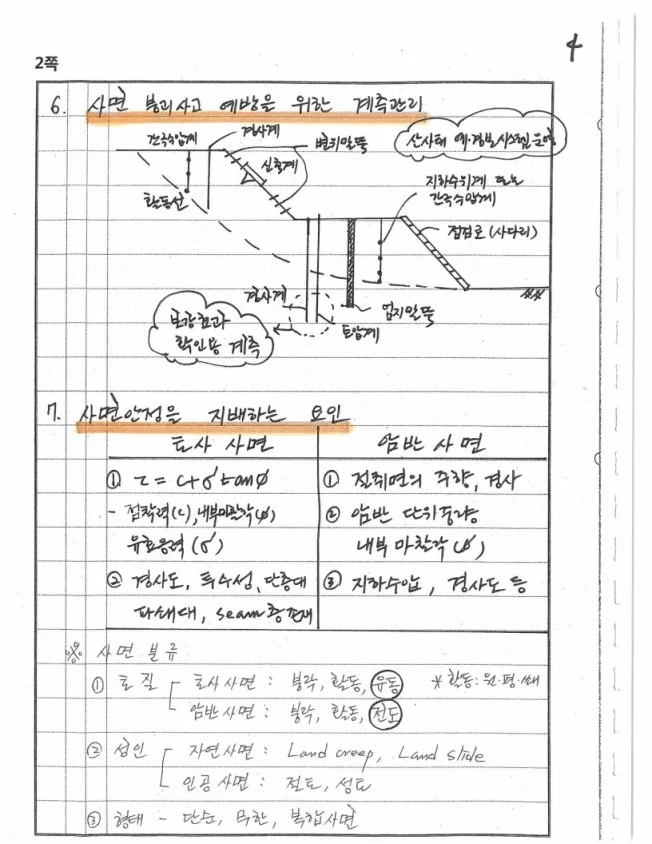 4
2쪽
6. 사면 붕괴사고 예방을 위한 계측관리
간극수압계
경사계
변위말뚝
산사태 예·경보시스템 운영
신축계
활동선
지하수위계 또는
간극수압계
점검로 (사다리)
경사계
엄지말뚝
토압계
보강효과
확인용 계측
7. 사면안정을 지배하는 요인
토사 사면
암반 사면
① τ = c+σ′tanφ
① 절취면의 주향, 경사
- 점착력(c), 내부마찰각(φ)
② 암반 단위중량
유효응력 (σ′)
내부 마찰각 (φ)
② 경사도, 투수성, 단층대
③ 지하수압, 경사도 등
파쇄대, seam층 존재
※ 사면 분류
① 토질 토사사면 : 붕락, 활동, 유동 * 활동: 원·평·쐐
암반사면 : 붕락, 활동, 전도
② 성인 자연사면 : Land creep, Land slide
인공사면 : 절토, 성토
③ 형태 - 단순, 무한, 복합사면